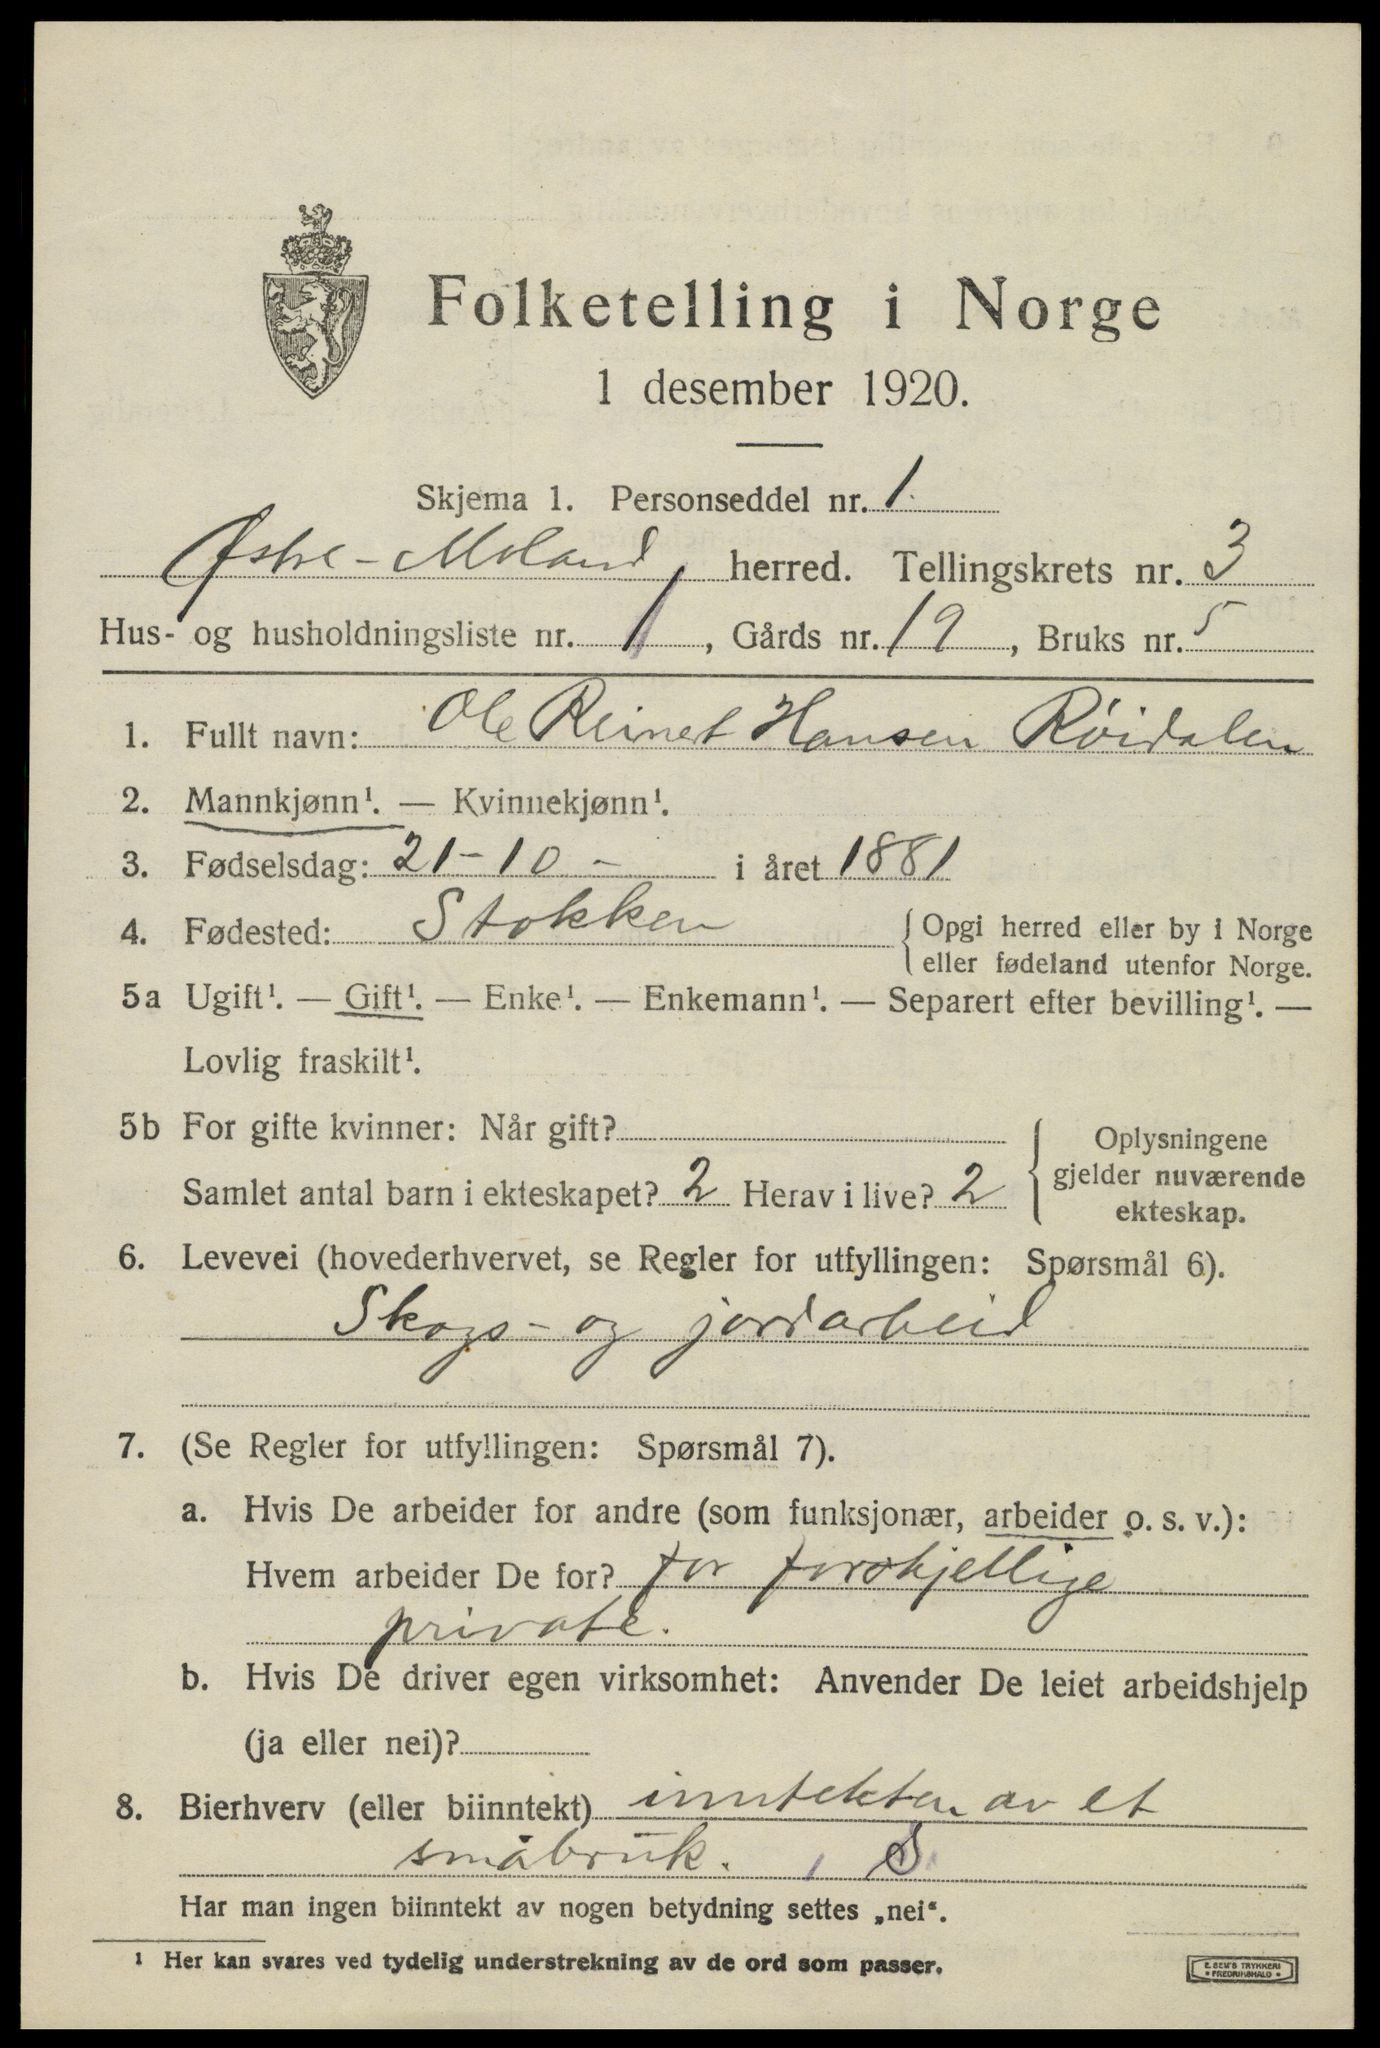 Folketelling i Norge
1 desember 1920.
Skjema 1. Personseddel nr. 1.
Østre-Moland herred. Tellingskrets nr. 3
Hus- og husholdningsliste nr. 1, Gårds nr. 19, Bruks nr. 5
1. Fullt navn: Ole Reinert Hansen Röidalen
2. Mannkjønn¹. — Kvinnekjønn¹.
3. Fødselsdag: 21-10- i året 1881
4. Fødested: Stokken { Opgi herred eller by i Norge
eller fødeland utenfor Norge.
5a Ugift¹. — Gift¹. — Enke¹. — Enkemann¹. — Separert efter bevilling¹. —
Lovlig fraskilt¹.
5b For gifte kvinner: Når gift? { Oplysningene
gjelder nuværende
ekteskap.
Samlet antal barn i ekteskapet? 2 Herav i live? 2
6. Levevei (hovederhvervet, se Regler for utfyllingen: Spørsmål 6).
Skogs- og jordarbeid
7. (Se Regler for utfyllingen: Spørsmål 7).
a. Hvis De arbeider for andre (som funksjonær, arbeider o. s. v.):
Hvem arbeider De for? for forskjellige
private.
b. Hvis De driver egen virksomhet: Anvender De leiet arbeidshjelp
(ja eller nei)?
8. Bierhverv (eller biinntekt) inntekten av et
småbruk. S
Har man ingen biinntekt av nogen betydning settes „nei“.
¹ Her kan svares ved tydelig understrekning av de ord som passer.
E. SEM'S TRYKKERI
• FREDRIKSHALD •